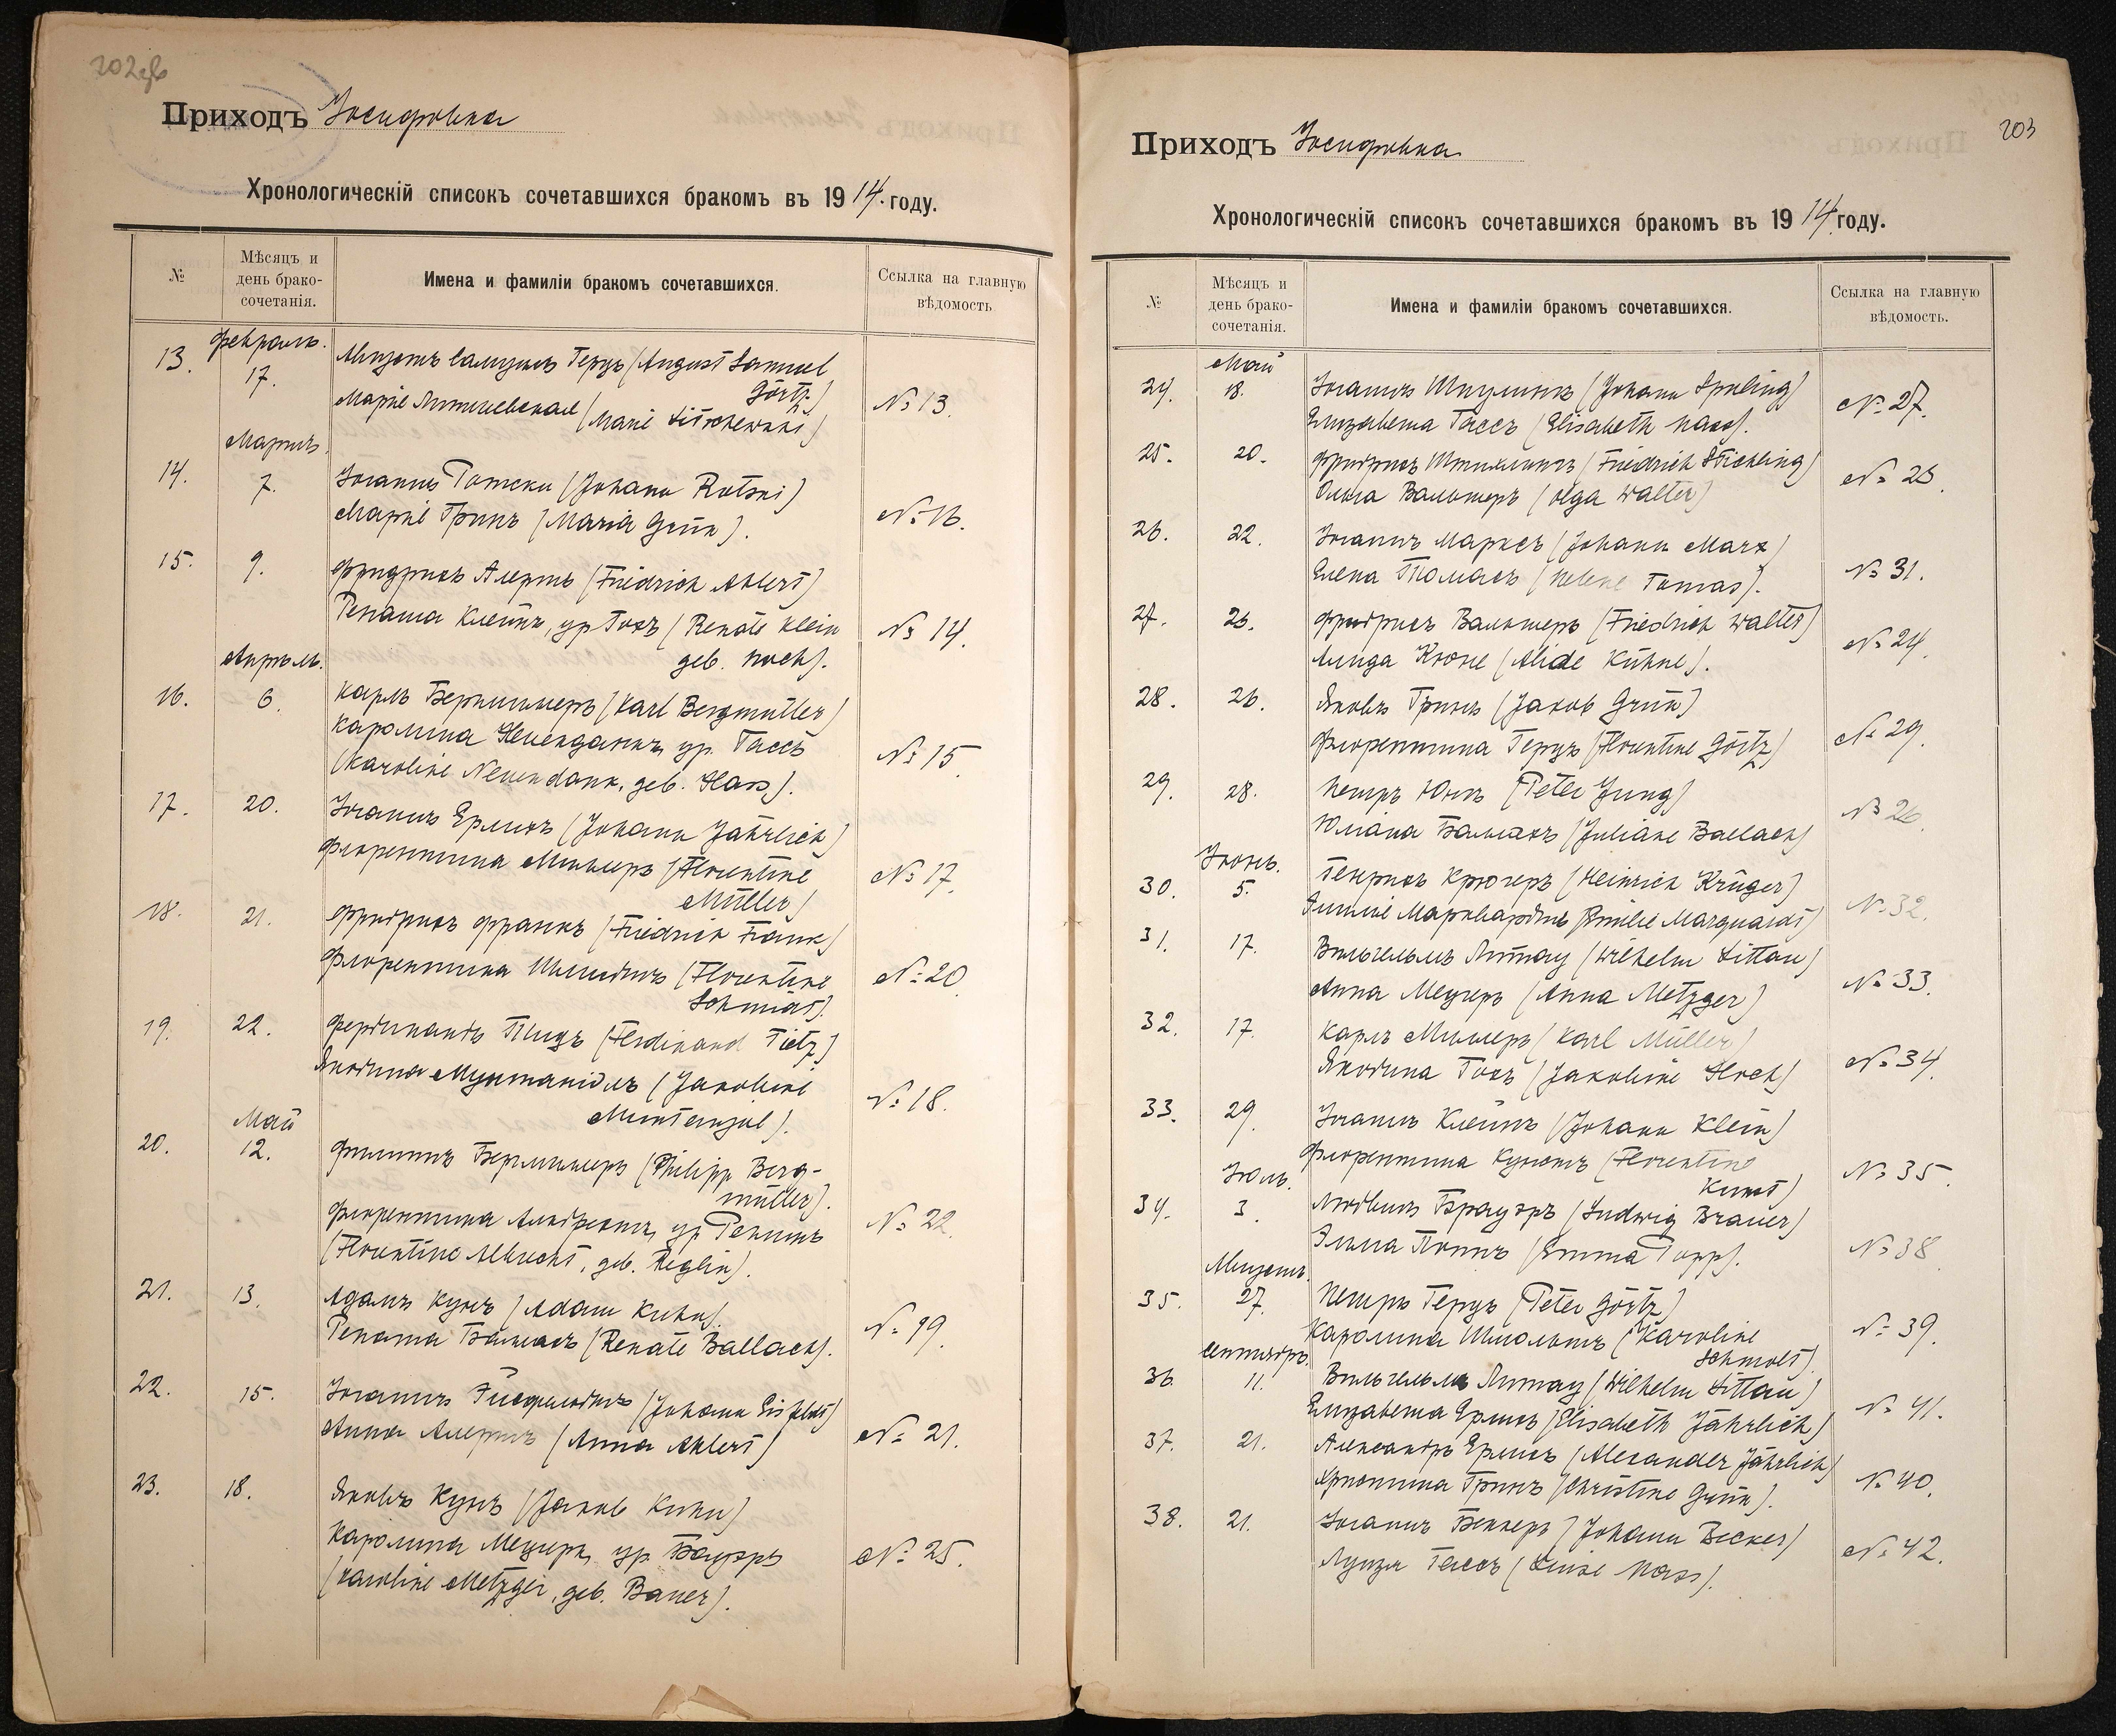 202об
Приходъ Іосифовка
Хронологическій списокъ сочетавшихся бракомъ въ 1914. году.
№
Мѣсяцъ и день брако-сочетанія.
Имена и фамиліи бракомъ сочетавшихся.
Ссылка на главную вѣдомость
Февраль.
13. 17. Августъ Самуилъ Герцъ (August Samuel
Görtz)
Марiе Литшевская (Marie Litschewski) № 13.
Мартъ.
14. 7. Іоганнъ Ротски (Johann Rotski)
Маріе Гринъ (Maria Grün). № 16.
15. 9. Фридрихъ Алертъ (Friedrich Ahlert)
Рената Клейнъ, ур Гохъ (Renate Klein
geb. Hoch). № 14.
Апрѣль.
16. 6. Карлъ Бергмиллеръ (Karl Bergmüller)
Каролина Неиенданкъ, ур. Гассъ
(Karoline Neuendank, geb. Hass). № 15.
17. 20. Іоганнъ Ерлихъ (Johann Jährlich)
Флорентина Миллеръ (Florentine
Müller) № 17.
18. 21. Фридрихъ Франкъ (Friedrich Frank)
Флорентина Шмидтъ (Florentine
Schmidt). № 20.
19. 22. Фердинандъ Тицъ (Ferdinand Tietz)
Якобина Мунтаніолъ (Jakobine
Muntanjol). № 18.
Май
20. 12. Филиппъ Бергмиллеръ (Philipp Berg-
müller).
Флорентина Альбрехтъ, ур Реглинъ
(Florentine Albrecht, geb. Reglin). № 22.
21. 13. Адамъ Кунъ (Adam Kuhn).
Рената Баллахъ (Renate Ballach). № 19.
22. 15. Іоганнъ Эйсфельдтъ (Johann Eisfeldt)
Анна Алертъ (Anna Ahlert) № 21.
23. 18. Яковъ Кунъ (Jakob Kuhn)
Каролина Мецгеръ, ур. Бауэръ
(Karoline Metzger, geb. Bauer). № 25.
203
Приходъ Іосифовка
Хронологическій списокъ сочетавшихся бракомъ въ 1914. году.
№
Мѣсяцъ и день брако-сочетанія.
Имена и фамиліи бракомъ сочетавшихся.
Ссылка на главную вѣдомость.
Май
24. 18. Іоганнъ Шпулингъ (Johann Spuling)
Елизавета Гассъ (Elisabeth Hass). № 27.
25. 20. Фридрихъ Штихлингъ (Friedrich Stichling)
Ольга Вальтеръ (Olga Walter) № 23.
26. 22. Іоганнъ Марксъ (Johann Marx)
Елена Томасъ (Helene Tomas). № 31.
27. 26. Фридрихъ Вальтеръ (Friedrich Walter)
Алида Кюне (Alide Kühne). № 24.
28. 26. Яковъ Гринъ (Jakob Grün)
Флорентина Герцъ (Florentine Görtz) № 29.
29. 28. Петръ Юнгъ (Peter Jung)
Юліана Баллахъ (Juliane Ballach) № 26.
Іюнь.
30. 5. Генрихъ Крюгеръ (Heinrich Krüger)
Эмиліе Марквардтъ (Emilie Marquardt) № 32.
31. 17. Вильгельмъ Литтау (Wilhelm Littau)
Анна Мецгеръ (Anna Metzger) № 33.
32. 17. Карлъ Миллеръ (Karl Müller)
Якобина Гохъ (Jakobine Hoch) № 34.
33. 29. Іоганнъ Клейнъ (Johann Klein)
Флорентина Кунстъ (Florentine
Kunst) № 35.
Іюль.
34. 3. Людвигъ Брауэръ (Ludwig Brauer)
Эмма Поппъ (Emma Popp). № 38.
Августъ.
35. 27. Петръ Герцъ (Peter Görtz)
Каролина Шмольтъ (Karoline
Schmolt). № 39.
Сентябрь.
36. 11. Вильгельмъ Литтау (Wilhelm Littau)
Елизавета Ерлихъ (Elisabeth Jährlich) № 41.
37. 21. Александръ Ерлихъ (Alexander Jährlich)
Христина Гринъ (Christine Grün). № 40.
38. 21. Іоганнъ Беккеръ (Johann Becker)
Луиза Гассъ (Luise Hass). № 42.